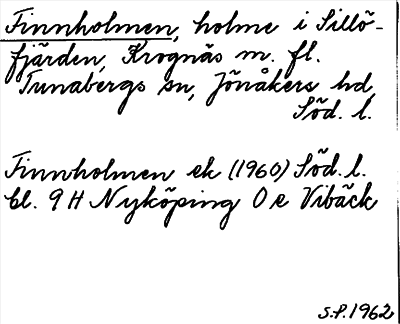 Finnholmen, holme i Sillö-
fjärden, Krognäs m. fl.
Tunabergs sn, Jönåkers hd,
Söd. l.
Finnholmen ek (1960) Söd. l.
bl. 9 H Nyköping O e Vibäck
S.P. 1962